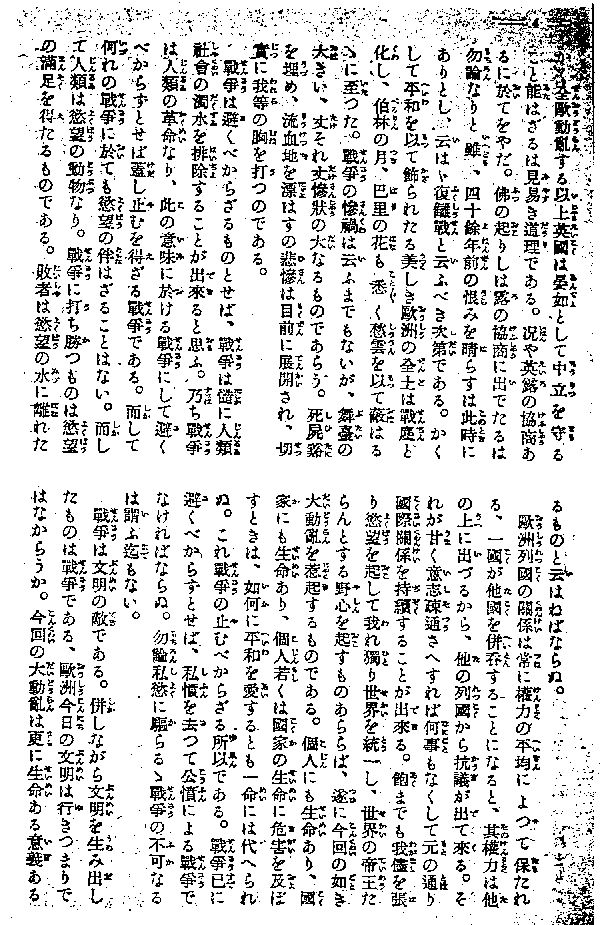 かく全歐動亂する以上英國は晏如として中立を守る
こと能はざるは見易き道理である。況や英露の協商あ
るに於てをやだ。佛の起りしは露の協商に出でたるは
勿論なりと雖、四十餘年前の恨みを晴らすは此時に
ありとし、云はゞ復讎戰と云ふべき次第である。かく
して平和を以て飾られたる美しき歐洲の全土は戰塵と
化し、伯林の月、巴里の花も悉く愁雲を以て蔽はる
ゝに至つた。戰爭の慘禍は云ふまでもないが、舞臺の
大きい、丈それ丈慘狀の大なるものであらう。死屍谿
を埋め、流血地を漂はすの悲慘は目前に展開され、切
實に我等の胸を打つのである。
戰爭は避くべからざるものとせば、戰爭は儘に人類
社會の濁水を排除することが出來ると思ふ。乃ち戰爭
は人類の革命なり、此の意味に於ける戰爭にして避く
べからずとせば蓋し止むを得ざる戰爭である。而して
何れの戰爭に於ても慾望の伴はざることはない。而し
て人類は慾望の動物なり。戰爭に打ち勝つものは慾望
の滿足を得たるものである。敗者は慾望の水に離れた
るものと云はねばならぬ。
歐洲列國の關係は常に權力の平均によつて保たれ
る、一國が他國を併呑することになると、其權力は他
の上に出づるから、他の列國から抗議が出て來る。そ
れが甘く意志疎通さへすれば何事もなくして元の通り
國際關係を持續することが出來る。飽までも我儘を張
り慾望を起して我れ獨り世界を統一し、世界の帝王た
らんとする野心を起すものあらば、遂に今回の如き
大動亂を惹起するものである。個人にも生命あり、國
家にも生命あり、個人若くは國家の生命に危害を及ぼ
すときは、如何に平和を愛するとも一命には代へられ
ぬ。これ戰爭の止むべからざる所以である。戰爭已に
避くべからずとせば、私憤を去つて公憤による戰爭で
なければならぬ。勿論私慾に驅らるゝ戰爭の不可なる
は謂ふ迄もない。
戰爭は文明の敵である。併しながら文明を生み出し
たものは戰爭である、歐洲今日の文明は行きつまりで
はなからうか。今回の大動亂は更に生命ある意義ある